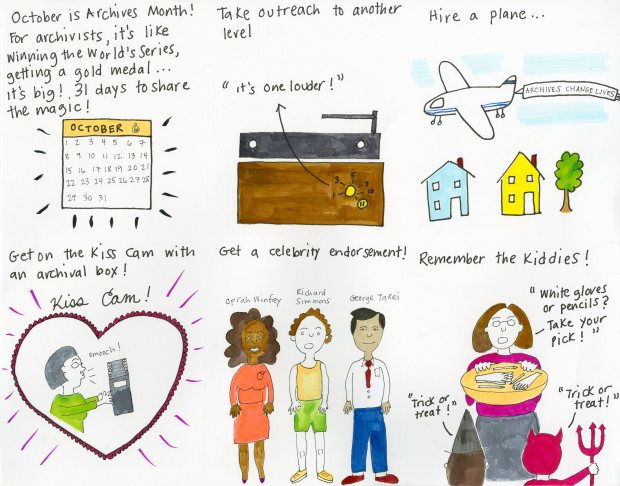 October is Archives Month!
For archivists, it's like
winning the World's Series,
getting a gold medal...
it's big! 31 days to share
the magic!
OCTOBER
1 2 3 4 5 6 7
8 9 10 11 12 13 14
15 16 17 18 19 20 21
22 23 24 25 26 27 28
29 30 31
Take outreach to another
level
"it's one louder!"
1 3 5 7 10 11
Hire a plane...
ARCHIVES CHANGE LIVES
Get on the Kiss Cam with
an archival box!
Kiss Cam!
smooch!
Get a celebrity endorsement!
Oprah Winfrey
Richard
Simmons
George Takei
Remember the Kiddies!
"White gloves
or pencils?
Take your
pick!"
"Trick or
treat!"
"Trick or
treat!"